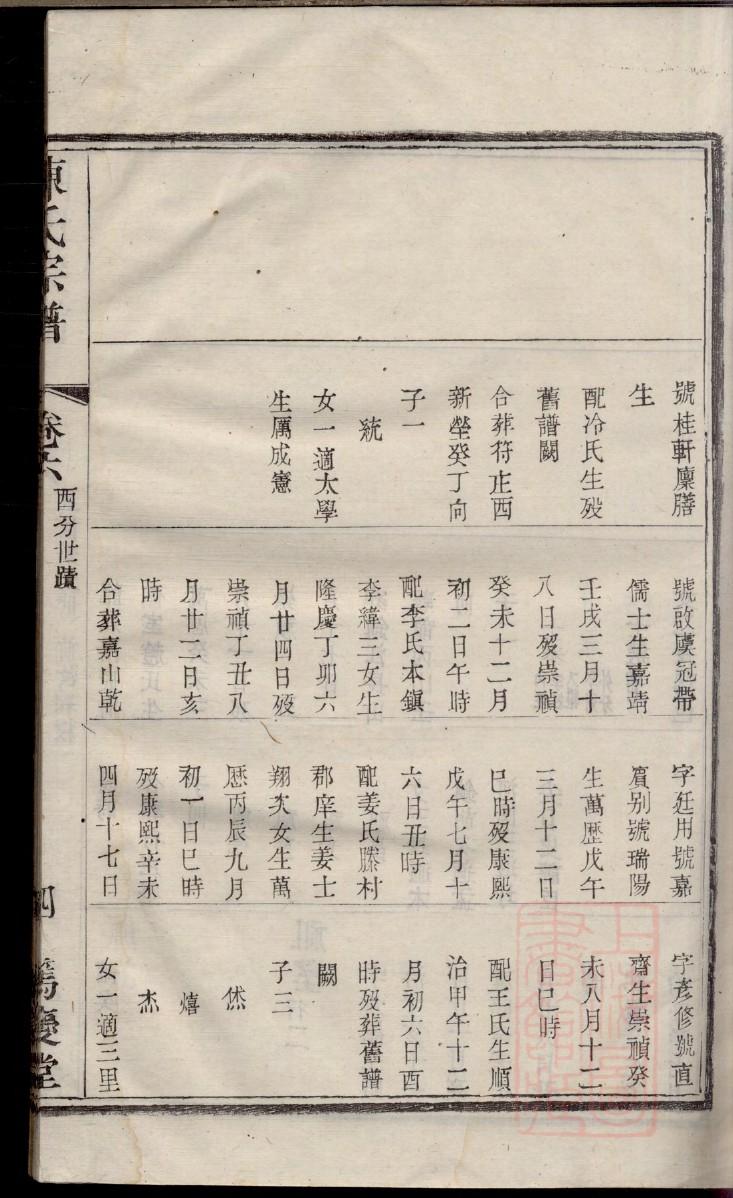 號桂軒廩膳
生
配冷氏生歿
舊譜闕
合葬符庄西
新塋癸丁向
子一
統
女一適太學
生厲成憲
號啟虞冠帶
儒士生嘉靖
壬戌三月十
八日歿崇禎
癸未十二月
初二日午時
配李氏本鎮
李緯三女生
隆慶丁卯六
月廿四日歿
崇禎丁丑八
月廿二日亥
時
合葬嘉山乾
字廷用號嘉
賓别號瑞陽
生萬歴戊午
三月十二日
巳時歿康熙
戊午七月十
六日丑時
配姜氏滕村
郡庠生姜士
翔次女生萬
歴丙辰九月
初一日巳時
歿康熙辛未
四月十七日
字彥修號直
齋生崇禎癸
未八月十二
日巳時
配王氏生順
治甲午十二
月初六日酉
時歿葬舊譜
闕
子三
烋
熺
杰
女一適三里
陳氏宗譜
卷六
西分世蹟
四
篤慶堂